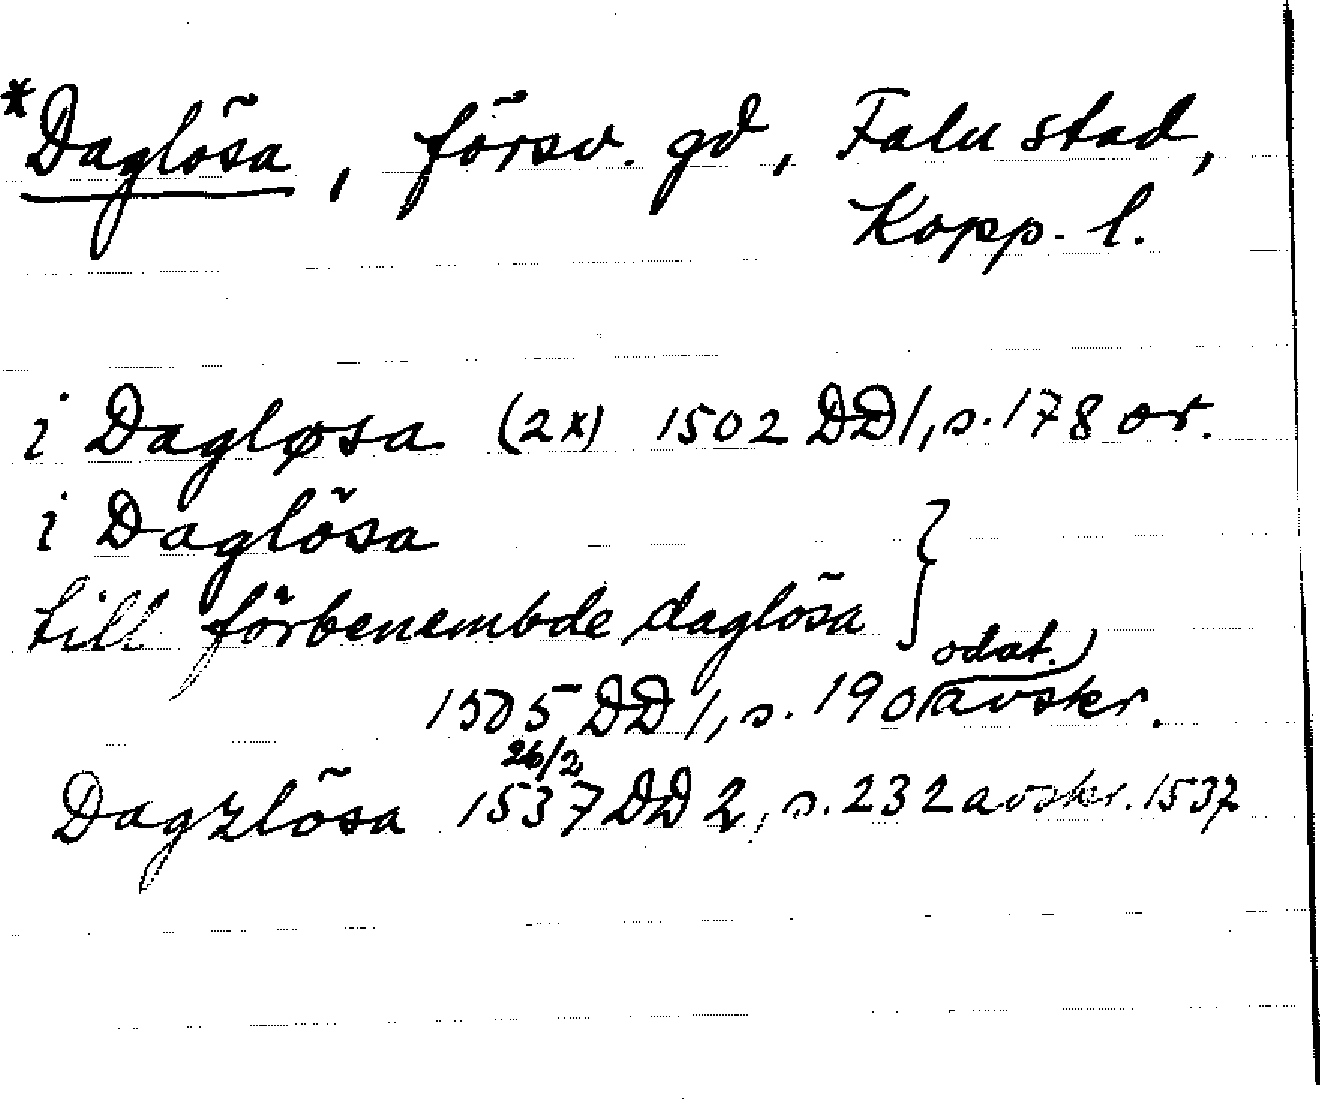 *Daglösa, försv. gd, Falu stad,
Kopp. l.
i Dagløsa (2x) 1502 DD1, s. 178 or.
i Daglösa
till förbenembde daglösa }
odat.
1505 DD1, s. 190 avskr.
26/2
Dagzlösa 1537 DD2, s. 232 avskr. 1537